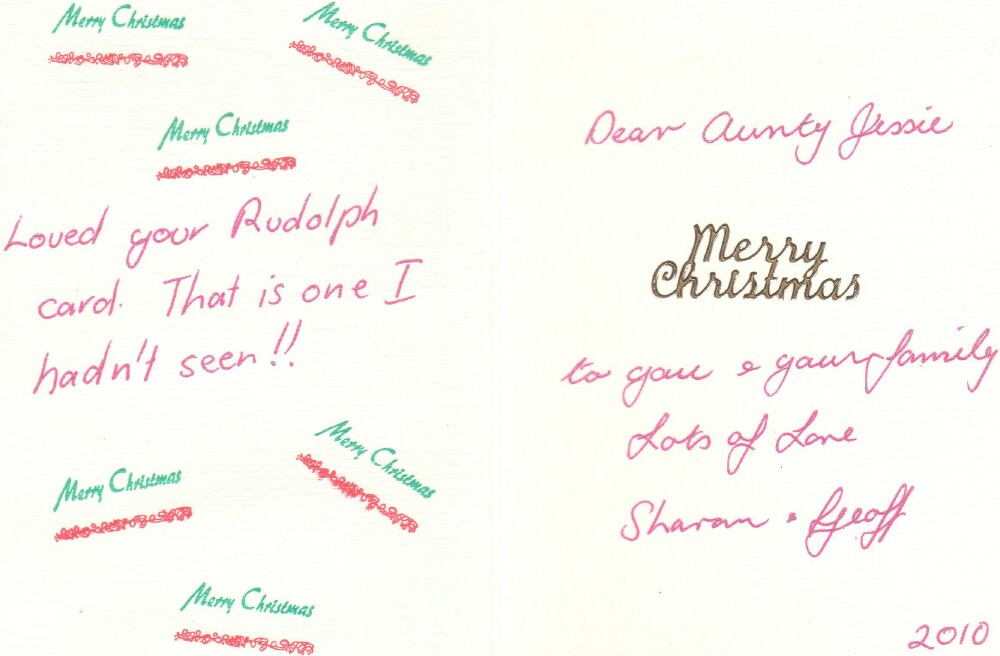 Merry Christmas
Merry Christmas
Merry Christmas
Loved your Rudolph
card. That is one I
hadn't seen!!
Merry Christmas
Merry Christmas
Merry Christmas
Dear Aunty Jessie
Merry
Christmas
to you & your family
Lots of Love
Sharon & Geoff
2010